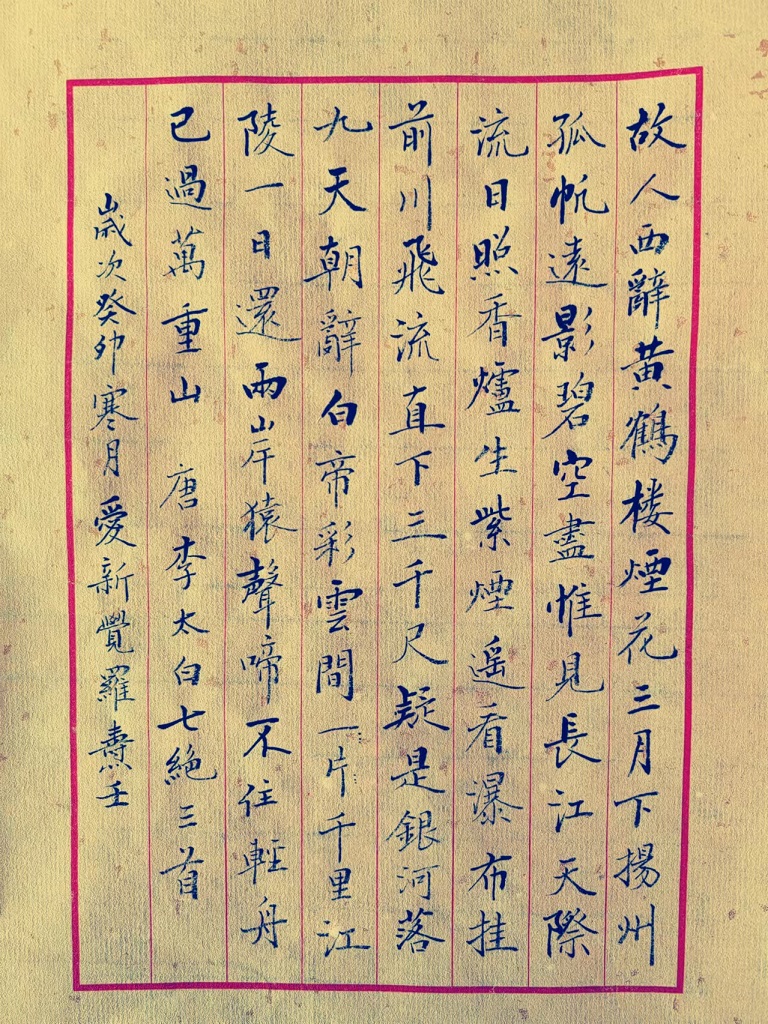 故人西辭黄鶴楼煙花三月下揚州
孤帆遠影碧空盡惟見長江天際
流日照香爐生紫煙遥看瀑布挂
前川飛流直下三千尺疑是銀河落
九天朝辭白帝彩雲間一片千里江
陵一日還兩岸猿聲啼不住輕舟
已過萬重山 唐李太白七絶三首
歲次癸卯寒月愛新覺羅燾壬